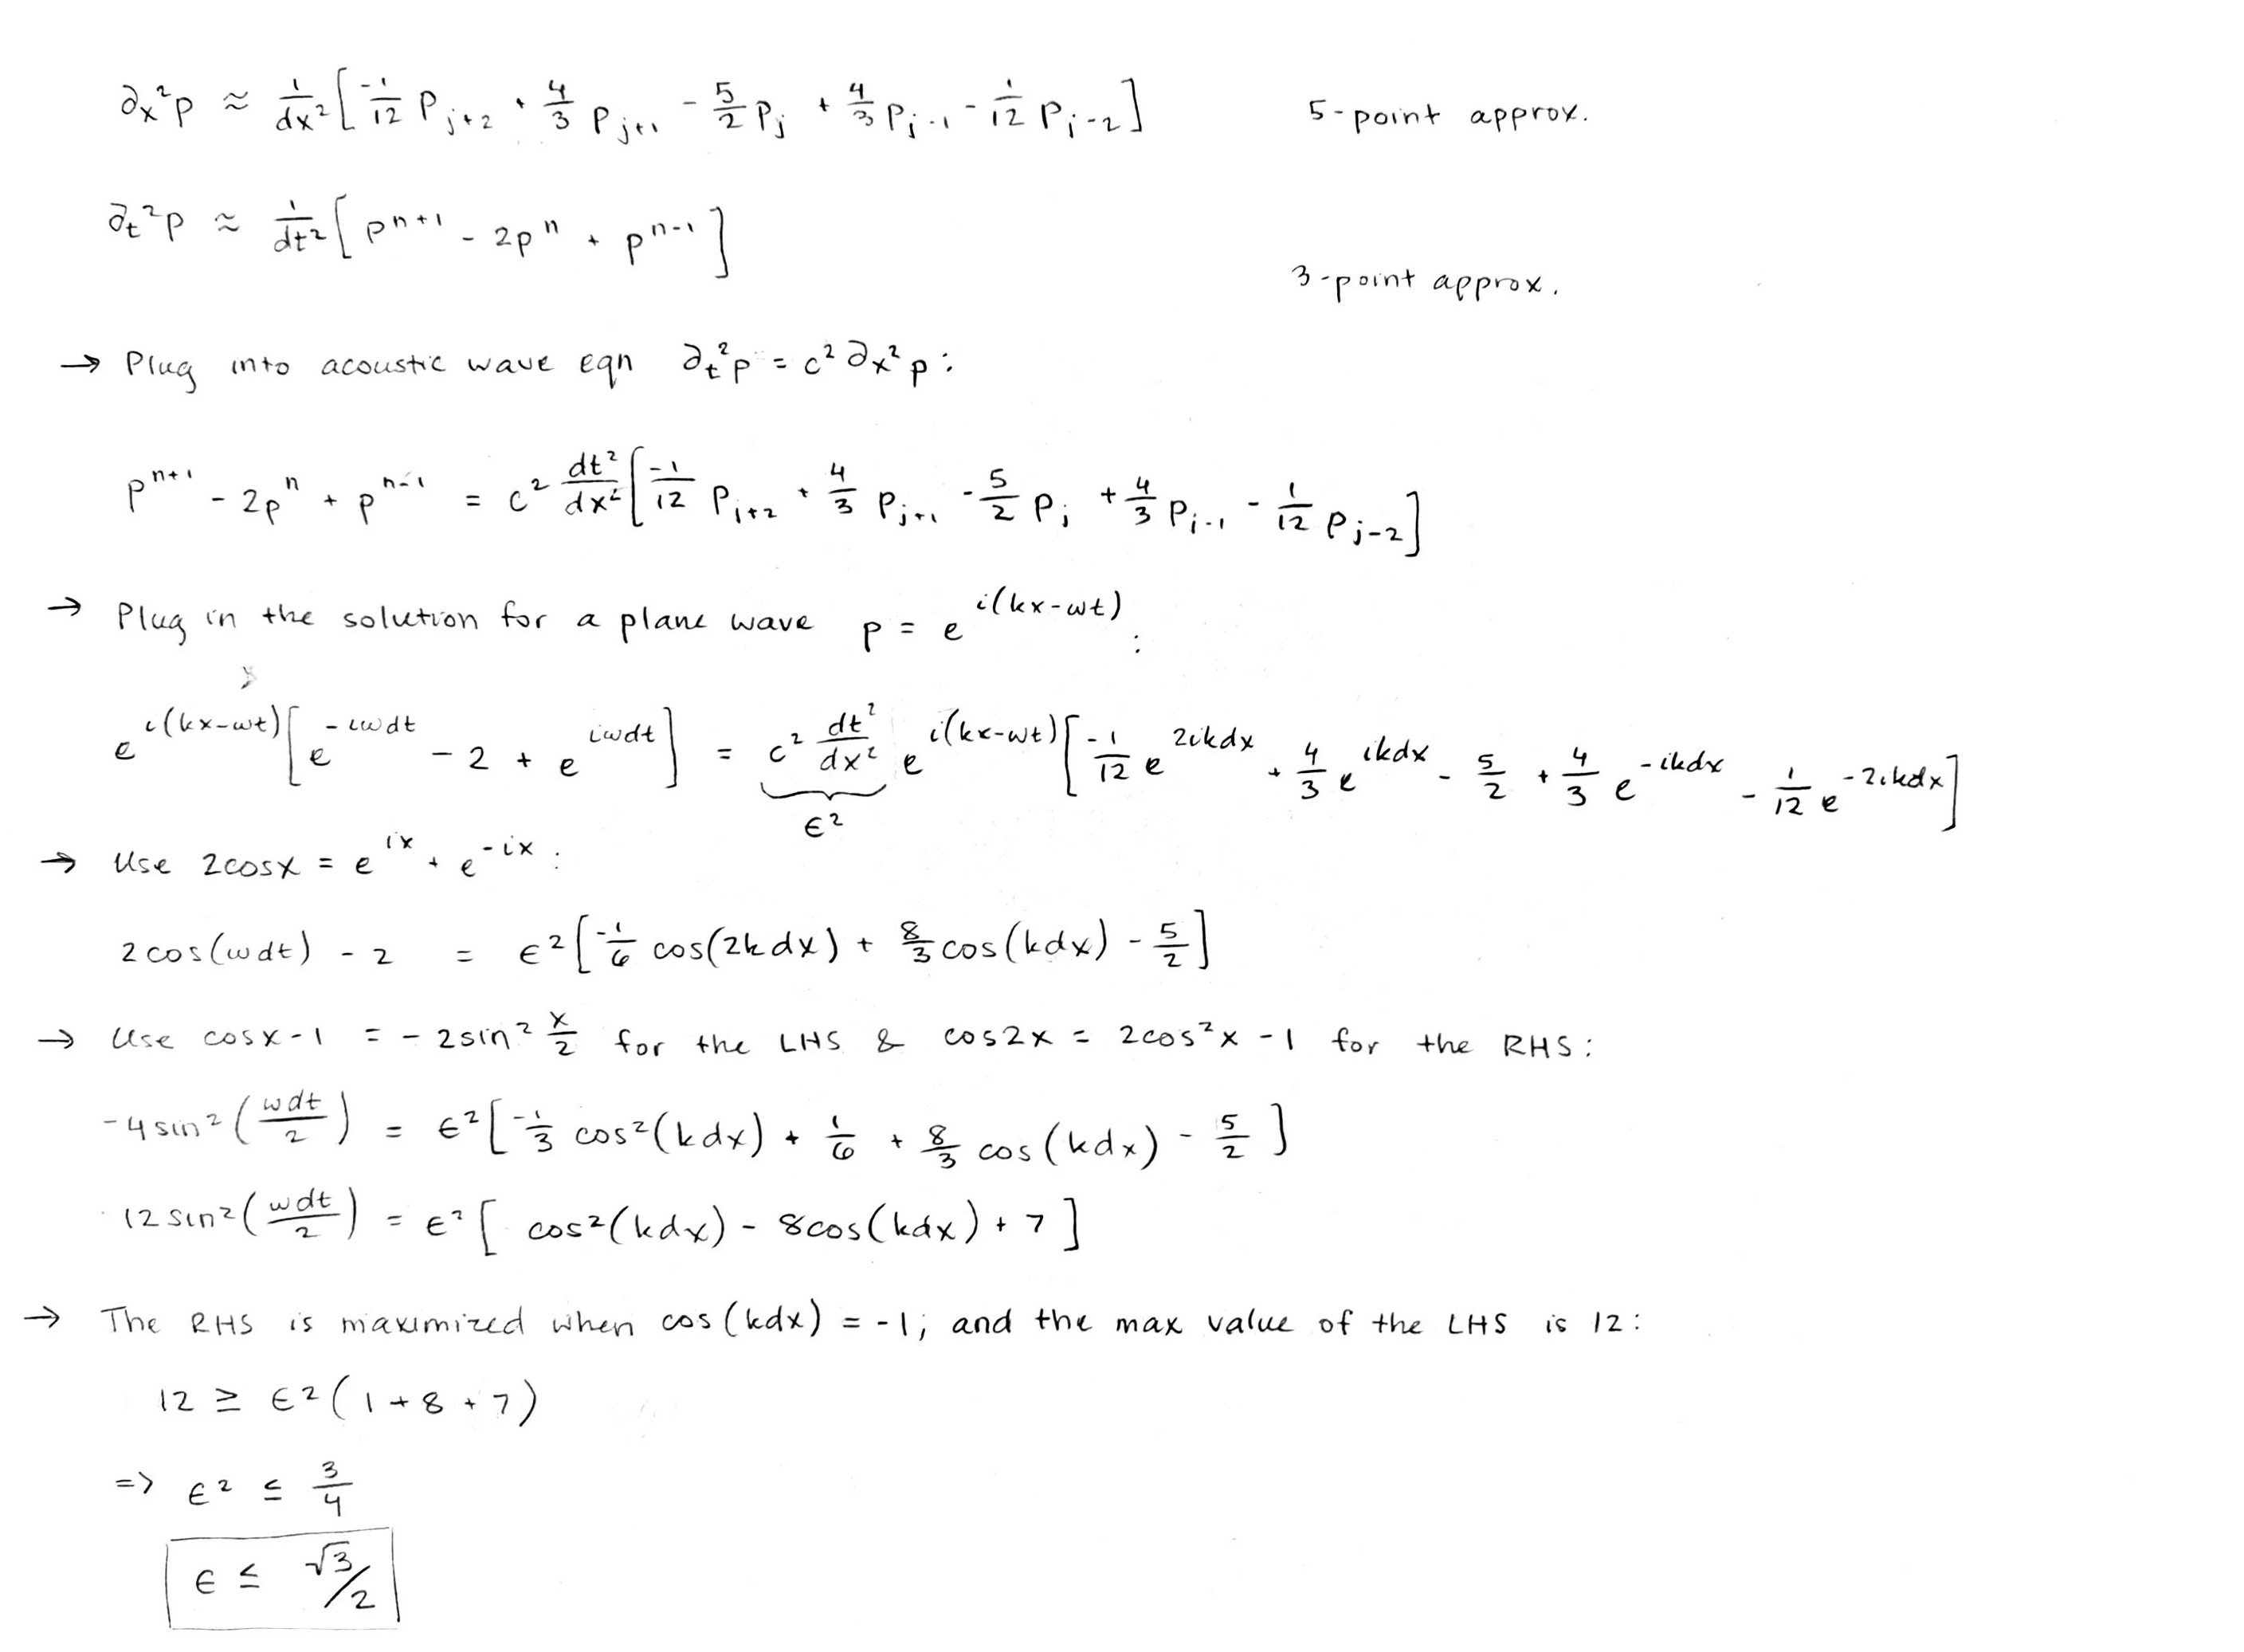 ∂x²p ≈ 1/dx² [ -1/12 P_{j+2} + 4/3 P_{j+1} - 5/2 P_j + 4/3 P_{j-1} - 1/12 P_{j-2} ] 5-point approx.
∂t²p ≈ 1/dt² [ p^{n+1} - 2p^n + p^{n-1} ]
3-point approx.
→ Plug into acoustic wave eqn ∂t²p = c² ∂x²p :
p^{n+1} - 2p^n + p^{n-1} = c² dt²/dx² [ -1/12 P_{j+2} + 4/3 P_{j+1} - 5/2 P_j + 4/3 P_{j-1} - 1/12 P_{j-2} ]
→ Plug in the solution for a plane wave p = e^{i(kx-ωt)} :
e^{i(kx-ωt)} [ e^{-iωdt} - 2 + e^{iωdt} ] = c² dt²/dx² e^{i(kx-ωt)} [ -1/12 e^{2ikdx} + 4/3 e^{ikdx} - 5/2 + 4/3 e^{-ikdx} - 1/12 e^{-2ikdx} ]
ϵ²
→ Use 2cosx = e^{ix} + e^{-ix} :
2cos(ωdt) - 2 = ϵ² [ -1/6 cos(2kdx) + 8/3 cos(kdx) - 5/2 ]
→ Use cosx-1 = -2sin² x/2 for the LHS & cos2x = 2cos²x -1 for the RHS:
-4sin² (ωdt/2) = ϵ² [ -1/3 cos²(kdx) + 1/6 + 8/3 cos(kdx) - 5/2 ]
12sin² (ωdt/2) = ϵ² [ cos²(kdx) - 8cos(kdx) + 7 ]
→ The RHS is maximized when cos(kdx) = -1; and the max value of the LHS is 12:
12 ≥ ϵ² (1+8+7)
=> ϵ² ≤ 3/4
ϵ ≤ √3/2